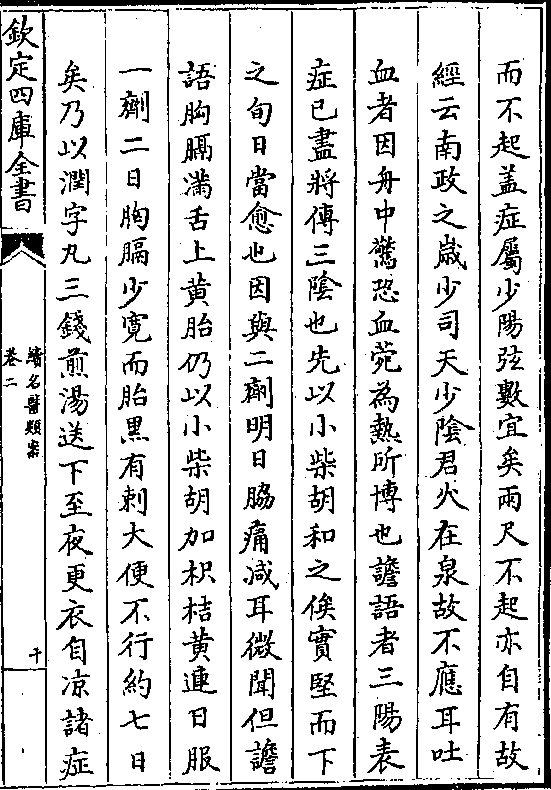 而不起盖症屬少陽弦數宜矣兩尺不起亦自有故
經云南政之嵗少司天少陰君火在泉故不應耳吐
血者因舟中驚恐血菀為熱所博也譫語者三陽表
症已盡將傳三陰也先以小柴胡和之俟實堅而下
之旬日當愈也因與二劑明日脇痛减耳微聞但譫
語胸膈滿舌上黄胎仍以小柴胡加枳桔黄連日服
一劑二日胸膈少寛而胎黑有刺大便不行約七日
矣乃以潤字丸三錢煎湯送下至夜更衣身凉諸症
欽定四庫全書
續名醫類案
卷二
十